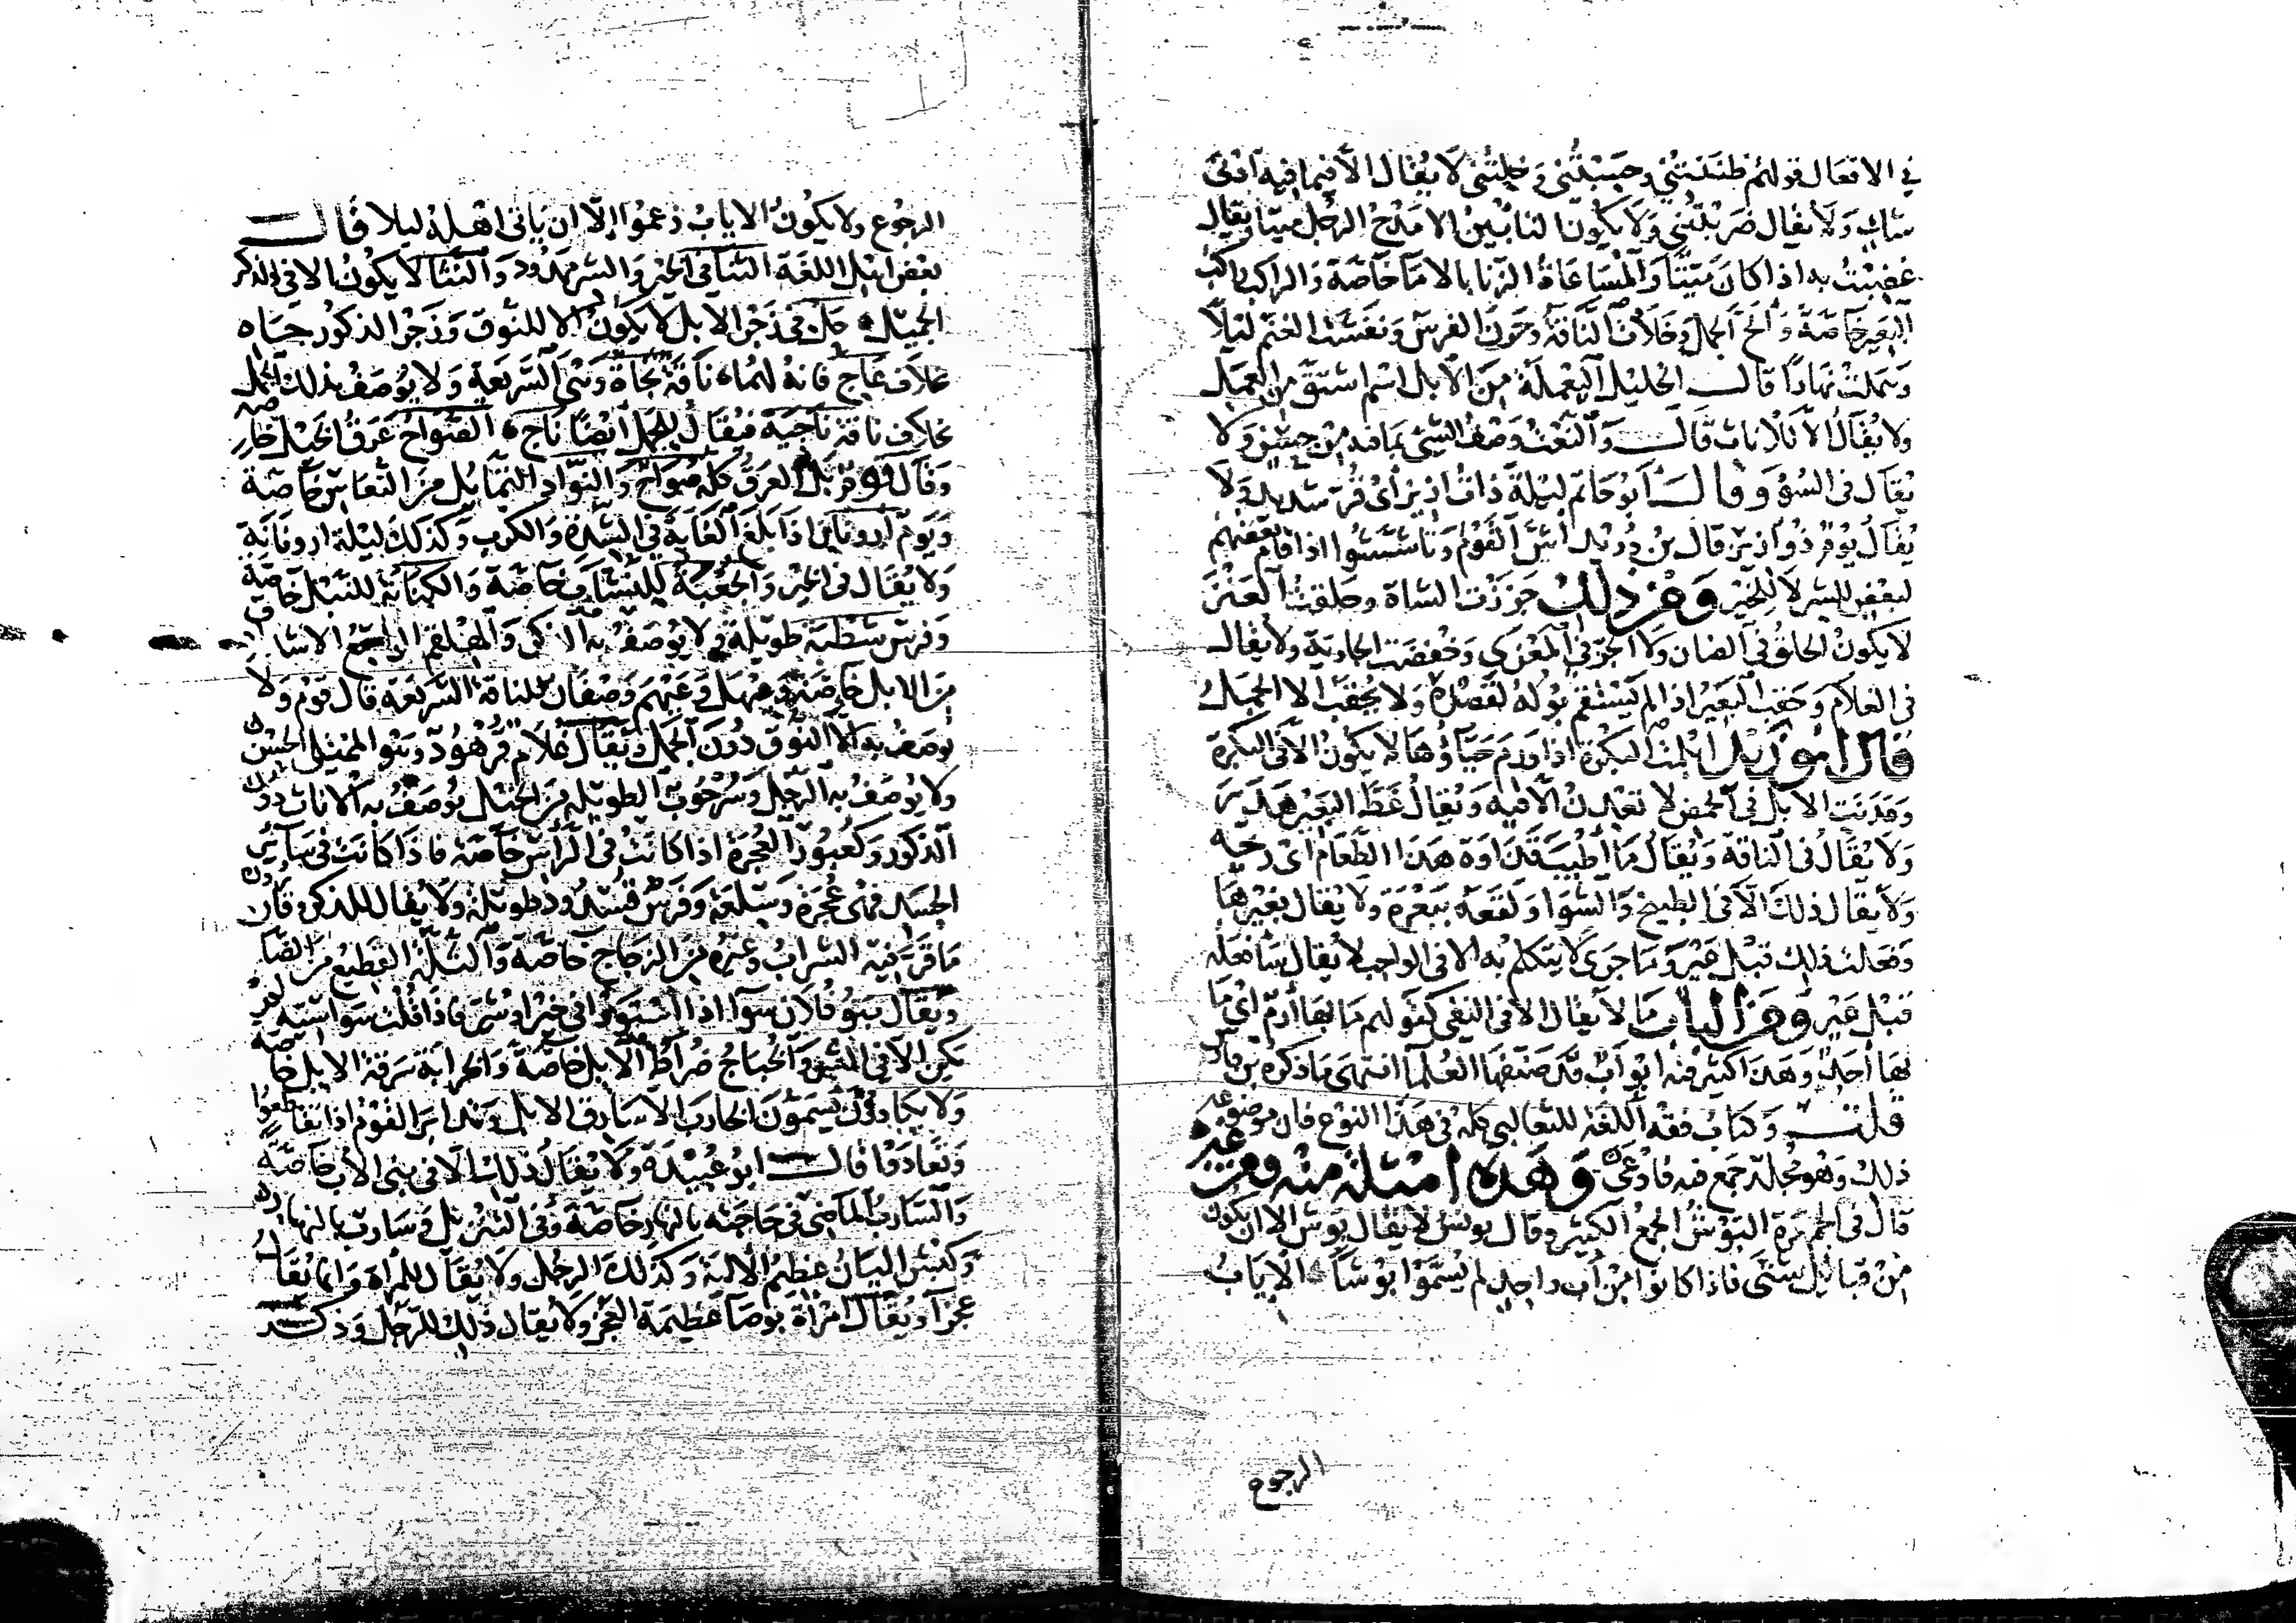 في الافعال قولهم ظننتني وحسبتني وخلتني لا يقال الا فيما فيه ادنى
شك ولا يقال ضربتني ولا يكون التابين الا مدح الرجل ميتا ويقال
غضبت به اذا كان ميتا والمساعاة الزنا بالاما خاصة والراكب راكب
البعير خاصة والح الجمل وخلات الناقة وحرن الفرس ونفشت الغنم ليلا
وهملت نهارا قال الخليل اليعملة من الابل اسم اشتق من العمل
ولا يقال الا للاناث قال والنعت وصف الشي بما فيه من حسن ولا
يقال في السوء وقال ابو حاتم ليلة ذات ازيز اي قر شديد ولا
يقال يوم ذو ازيز قال بن دريد اشش القوم وتاششوا اذا قام بعضهم
لبعض للشر لا للخير ومن ذلك جززت الشاة وحلقت العنز
لا يكون الحلق في الضان ولا الجز في المعزى وخفضت الجارية ولا يقال
في الغلام وحقب البعير اذا لم يستقم بوله لقصده ولا يحقب الا الجمل
قال ابو زيد ابلمت البكرة اذا ورم حياوها لا يكون الا في البكرة
وعدنت الابل في الحمض لا تعدن الا فيه ويقال غط البعير هدر
ولا يقال في الناقة ويقال ما اطيب قداوة هذا الطعام اي ريحه
ولا يقال ذلك الا في الطبيخ والشوا ولقعه ببعرة ولا يقال بغيرها
وفعلت ذلك قبل عير وما جرى لا يتكلم به الا في الواجب لا يقال سافعله
قبل عير ومن الباب ما لا يقال الا في النفي كقولهم ما بها ارم اي ما
بها احد وهذا كثير فيه ابواب قد صنفها العلما انتهى ما ذكره بن فارس
قلت وكتاب فقه اللغة للثعالبي كله في هذا النوع فان موضوعه
ذلك وهو مجلد جمع فيه فاوعى وهذه امثلة منه ومن غيره
قال في الجمهرة البوش الجمع الكثير وقال يونس لا يقال بوش الا ان يكون
من قبائل شتى فاذا كانوا من اب واحد لم يسموا بوشا الاياب
الرجوع
الرجوع ولا يكون الاياب زعموا الا ان ياتي اهله ليلا قال
بعض اهل اللغة الثنا في الخير والشر ممدود والنثا لا يكون الا في الذكر
الجميل حل في زجر الابل لا يكون الا للنوق وزجر الذكور جاه
خلاف عاج فانه لهما ناقة نجاة وهي السريعة ولا يوصف بذلك الجمل
بخلاف ناقة ناجية فيقال للجمل ايضا ناج الصواح عرق الخيل خاصة
وقال قوم بل العرق كله صواح والنواد التمايل من النعاس خاصة
ويوم ارونان اذا بلغ الغاية في الشدة والكرب وكذلك ليلة ارونانة
ولا يقال في الخير والجعبة للنشاب خاصة والكنانة للنبل خاصة
وفرس شطبة طويلة ولا يوصف به الذكر والهلقم الواسع الاشداق
من الابل خاصة وعيهل وعيهم وصفان للناقة السريعة قال قوم ولا
يوصف به الا النوق دون الجمل ويقال غلام فرهود وهو الممتلي الحسن
ولا يوصف به الرجل وسرحوب الطويلة من الخيل يوصف به الاناث دون
الذكور وكعبورة العجرة اذا كانت في الراس خاصة فاذا كانت في سائر
الجسد فهي عجرة وسلعة وفرس قيدود طويلة ولا يقال للذكر وقارورة
ما قر فيه الشراب وغيره من الزجاج خاصة والثلة القطيع من الضان
ويقال بنو فلان سوا اذا استووا في خير او شر فاذا قلت سواسية لم
يكن الا في الشر والحباج ضراط الابل خاصة والخرابة سرقة الابل خاصة
ولا يكادون يسمون الخارب الا سارق الابل وتدابر القوم اذا تقاطعوا
وتعادوا قال ابو عبيدة ولا يقال ذلك الا في بني الاب خاصة
والسارب الماضي في حاجته بالنهار خاصة وفي التنزيل وسارب بالنهار
وكبش اليان عظيم الالية وكذلك الرجل ولا يقال للمراة وانما يقال
عجزا ويقال امراة بوصا عظيمة العجز ولا يقال ذلك للرجل وذكر